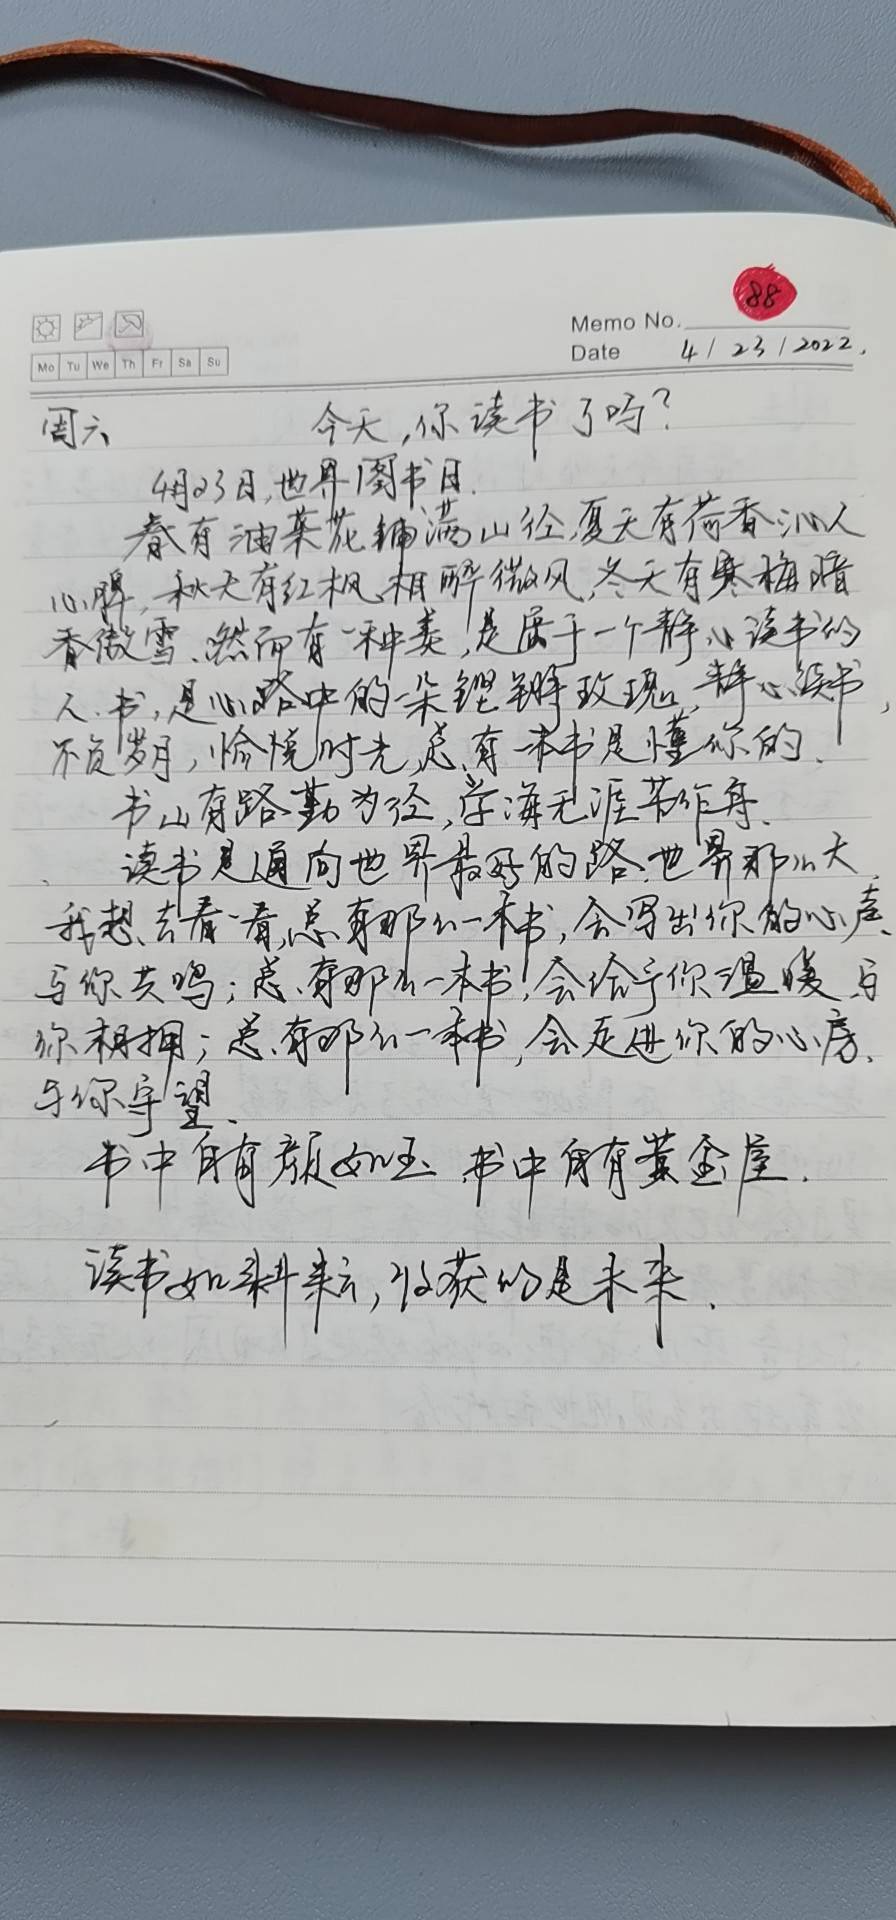 88
Memo No.
Date 4/23/2022.
Mo Tu We Th Fr Sa Su
周六 今天,你读书了吗?
4月23日,世界图书日.
春有油菜花铺满山径,夏天有荷香沁人
心脾,秋天有红枫相醉微风,冬天有寒梅暗
香傲雪、然而有一种美,是属于一个静心读书的
人.书,是心路中的一朵铿锵玫瑰,静心读书,
不负岁月,愉悦时光,总有一本书是懂你的.
书山有路勤为径,学海无涯苦作舟.
读书是通向世界最好的路.世界那么大,
我想去看一看,总有那么一本书,会写出你的心声、
与你共鸣;总有那么一本书,会给予你温暖与
你相拥;总有那么一本书,会走进你的心房、
与你守望.
书中自有颜如玉.书中自有黄金屋.
读书如耕耘,收获的是未来.